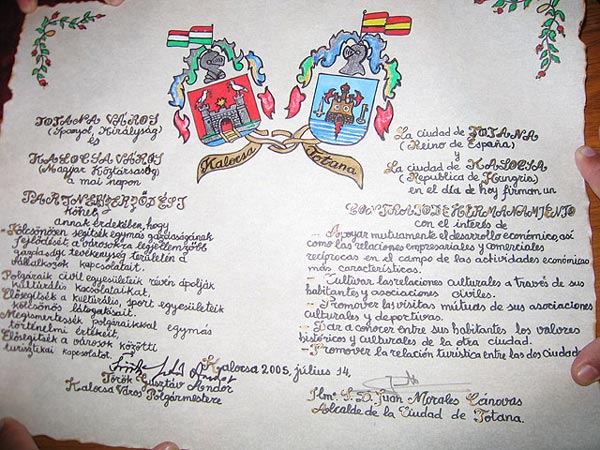 Kalocsa Totana
TOTANA VÁROS
(Spanyol Királyság)
és
KALOCSA VÁROS
(Magyar Köztársaság)
a mai napon
PARTNERSZERZŐDÉST
kötnek
annak érdekében, hogy
- Kölcsönösen segítsék egymás gazdaságának
fejlődését, a városokra legjellemzőbb
gazdasági tevékenység területén a
vállalkozók kapcsolatait.
Polgáraik civil egyesületeik révén ápolják
kulturális kapcsolataikat.
Elősegítsék a kulturális, sport egyesületeik
kölcsönös látogatásait.
Megismertessék polgáraikkal egymás
történelmi értékeit,
Elősegítsék a városok közötti
turisztikai kapcsolatot.
La ciudad de TOTANA
(Reino de España)
y
La ciudad de KALOCSA
(Republica de Hungria)
en el día de hoy firman un
CONTRATO DE HERMANAMIENTO
con el interés de
- Apoyar mutuamente el desarrollo económico, así
como las relaciones empresariales y comerciales
recíprocas en el campo de las actividades económicas
más características.
- Cultivar las relaciones culturales a través de sus
habitantes y asociaciones civiles.
- Promover las visitas mútuas de sus asociaciones
culturales y deportivas.
- Dar a conocer entre sus habitantes los valores
históricos y culturales de la otra ciudad.
- Promover la relación turística entre las dos ciudades
Kalocsa 2005. július 14.
Török Gusztáv Andor
Kalocsa Város Polgármestere
Ilmo. S. D. Juan Morales Cánovas
Alcalde de la Ciudad de Totana.